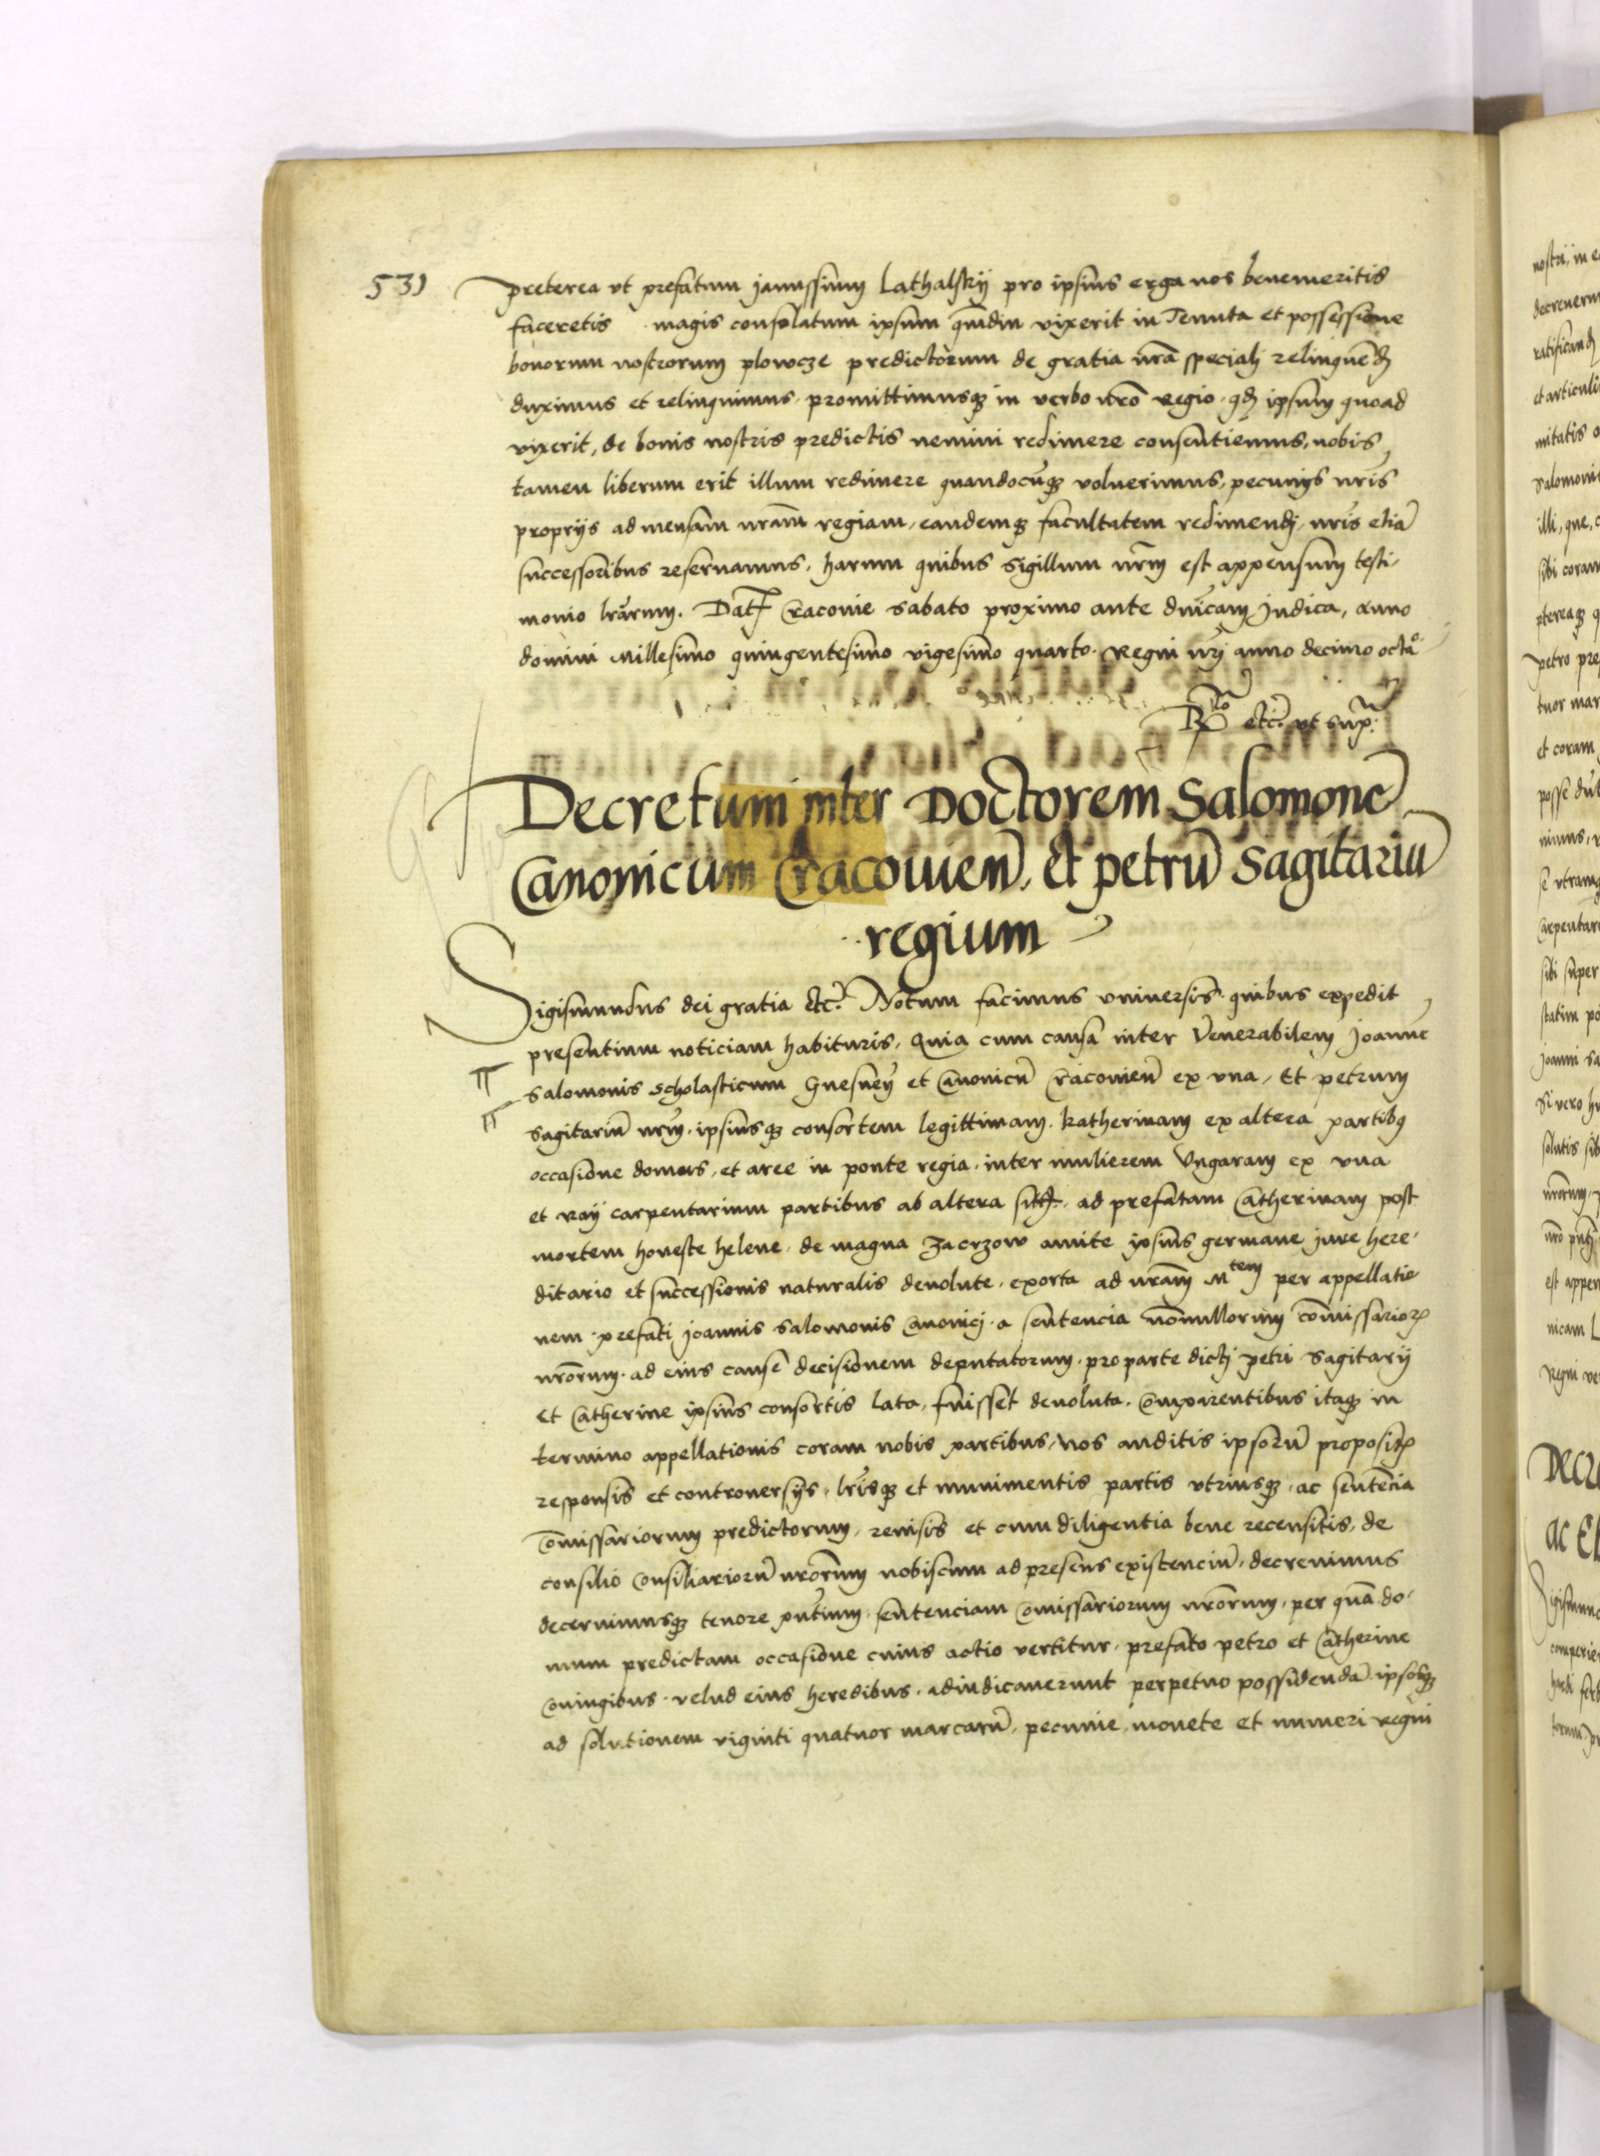 531
preterea ut prefatum Janussium Lathalskij pro ipsius erga nos benemeritis
faceretis magis consolatum ipsum quādiu vixerit in Tenuta et possessione
bonorum nostrorum plowcze predictorum de gratia nrā speciali relinquēd
duximus et relinquimus, promittimusq in verbo nrō Regio, qd ipsum quoad
vixerit, de bonis nostris predictis nemini redimere consentiemus, nobis
tamen liberum erit illum redimere quandocūq voluerimus, pecunijs nrīs
proprijs ad mensam nrām regiam, eandemq facultatem redimendi, nrīs etiā
successoribus reservamus, harum quibus Sigillum nrm est appensum testi-
monio lrārum. Dat Cracovie Sabato proximo ante dnicam Judica, Anno
domini Millesimo quingentesimo vigesimo quarto. Regni nrj anno decimo octāo
Rlo etc. ut supra
Decretum inter Doctorem Salomonē
Canonicum Cracouien, et petrū Sagitariū
regium
Sigismundus dei gratia etc. Notum facimus vniversis quibus expedit
presentium noticiam habituris, Quia cum causa inter Venerabilem Joannē
Salomonis Scholasticum Gnesneñ et Canonicū Cracovieñ ex vna, Et petrum
Sagitariū nrm, ipsiusq consortem legittimam Katherinam ex altera partibq
occasione domus, et aree in ponte regia, inter mulierem Vngaram ex vna
et Raij carpentarium partibus ab altera sitt, ad prefatam Catherinam post
mortem honeste helene, de magna Zacrzow amite ipsius germane jure here-
ditario et successionis naturalis devolute, exorta ad nrām Mtem per appellatio
nem prefati Joannis Salomonis Canonici, a sentencia nōnullorum cōmissarior
nrōrum, ad eius cause decisionem deputatorum, pro parte dictj petri Sagitarij
et Catherine ipsius consortis lata, fuisset devoluta. Comparentibus itaq in
termino appellationis coram nobis partibus, Nos auditis ipsorū proposit
responsis et controversijs, lrīsq et munimentis partis vtriusq, ac sentēcia
Cōmissariorum predictorum, revisis et cum diligentia bene recensitis, de
consilio Consiliariorū nrōrum nobiscum ad presens existenciū, decrevimus
decernimusq tenore pntium, sentenciam Cōmissariorum nrōrum, per quā do-
mum predictam occasione cuius actio vertitur, prefato petro et Catherine
Coniugibus, velud eius heredibus, adiudicaverunt perpetuo possidendā, ipsosq
ad solutionem viginti quatuor marcarū, pecunie, monete et numeri regni